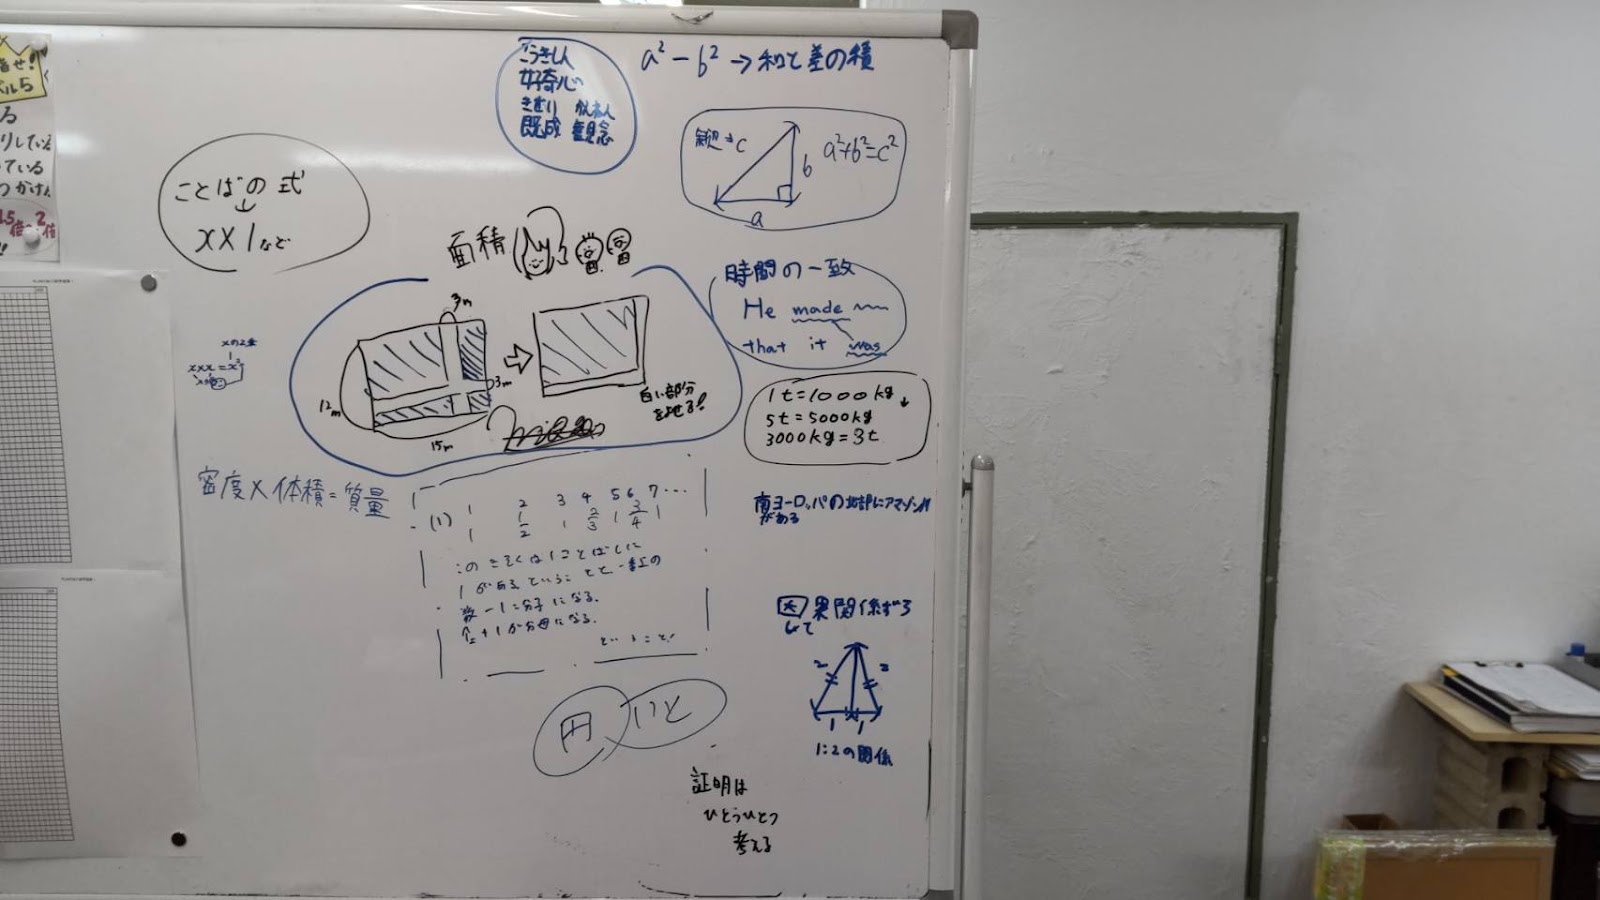 こうきしん
好奇心
きせい かんねん
既成 観念
a²-b²→和と差の積
斜辺→c
a²+b²=c²
b
a
ことばの式
↓
x×1など
面積
3m
3m
12m
15m
白い部分
をよせる!
時間の一致
He made
that it was
1t=1000kg
5t=5000kg
3000kg=3t
xの2乗
x×x=x²
密度×体積=質量
(1) 1 2 3 4 5 6 7…
1 1/2 1 2/3 1 3/4 1
1があるということと
数-1に分子になる.
+1が分母になる.
ということ!
南ヨーロッパの北部にアマゾン川
がある
因果関係ずろ
して
2 2
1 1
1:2の関係
円 いと
証明は
ひとうひとつ
考える
指せ!
ベル5
る
りしている
ている
つかけ
1.5倍 2倍